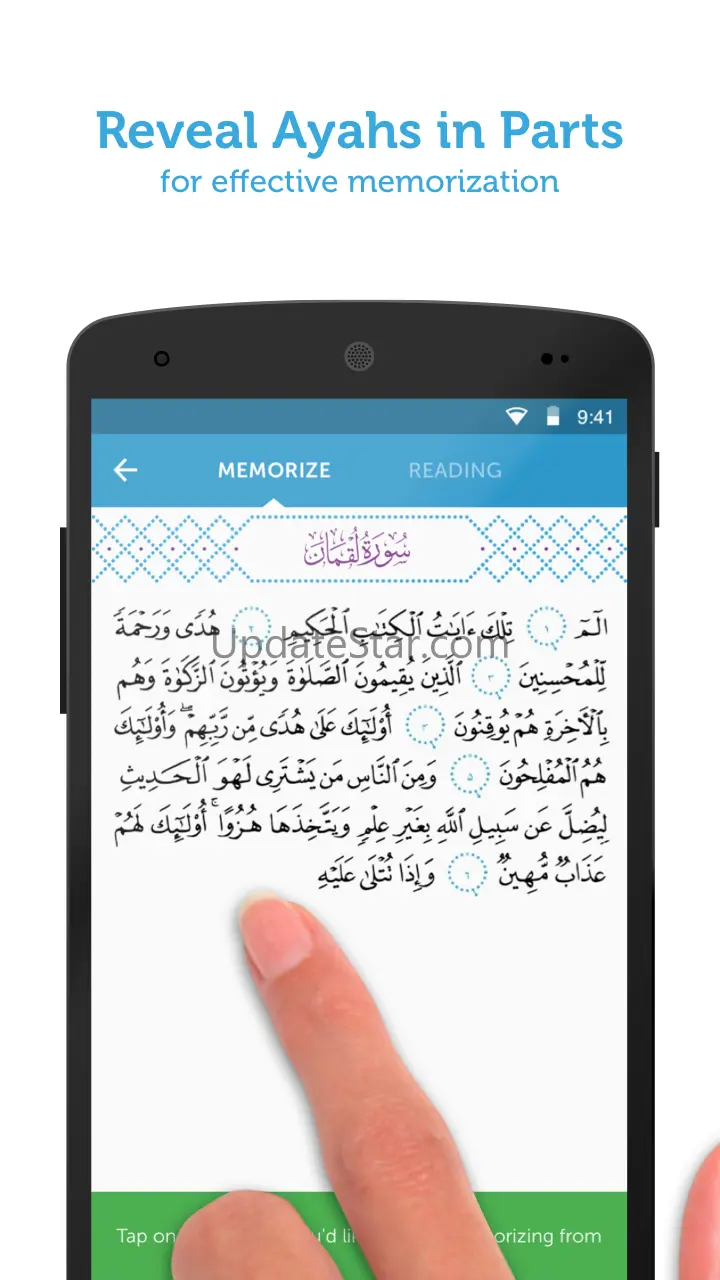 Reveal Ayahs in Parts
for effective memorization
9:41
MEMORIZE READING
سُورَةُ لُقْمَان
الٓمٓ ١ تِلْكَ ءَايَٰتُ ٱلْكِتَٰبِ ٱلْحَكِيمِ ٢ هُدًى وَرَحْمَةً
لِّلْمُحْسِنِينَ ٣ ٱلَّذِينَ يُقِيمُونَ ٱلصَّلَوٰةَ وَيُؤْتُونَ ٱلزَّكَوٰةَ وَهُم
بِٱلْءَاخِرَةِ هُمْ يُوقِنُونَ ٤ أُو۟لَٰٓئِكَ عَلَىٰ هُدًى مِّن رَّبِّهِمْ ۖ وَأُو۟لَٰٓئِكَ
هُمُ ٱلْمُفْلِحُونَ ٥ وَمِنَ ٱلنَّاسِ مَن يَشْتَرِى لَهْوَ ٱلْحَدِيثِ
لِيُضِلَّ عَن سَبِيلِ ٱللَّهِ بِغَيْرِ عِلْمٍ وَيَتَّخِذَهَا هُزُوًا ۚ أُو۟لَٰٓئِكَ لَهُمْ
عَذَابٌ مُّهِينٌ ٦ وَإِذَا تُتْلَىٰ عَلَيْهِ
UpdateStar.com
Tap on u'd li orizing from